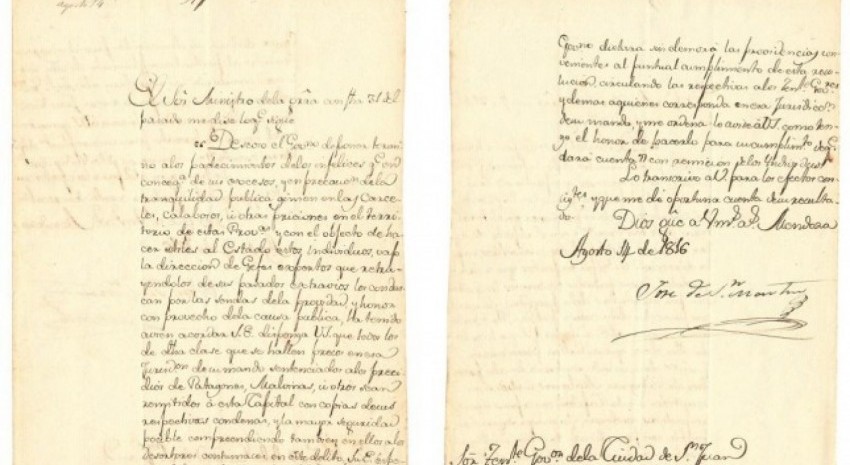 Agosto 14
El Sor Ministro de la Grra con fha 31 del
pasado me dice lo qe sigue
Deseoso el Gno de poner termi
no a los padecimientos de los infelices qe en
conseqa de sus excesos, y en precaucn de la
tranquilidad publica gimen en las Carce
les, calabozos, ú otras priciones en el terri
torio de estas Provs y con el objeto de ha
cer utiles al Estado estos individuos, vajo
la direccion de Gefes expertos que retra
yendolos de sus pasados extravios los condus
can por las sendas de la providad y honor
con provecho de la causa publica, Ha tenido
a vien acordar S.E. disponga VS. que todos los
de dha clase que se hallen presos en esa
Jurisdon de su mando sentenciados a los presi
dios de Patagones, Malvinas, ú otros sean
remitidos á esta Capital con copias de sus
respectivas condenas, y la mayor seguridad
posible comprendiendo tambien en ellos a lo
desertores contumaces en este delito. Su E.
Govno dictara sin demora las providencias con
venientes al puntual cumplimiento de esta reso
lucion, circulando las respectivas a los Tentes Govres
y demas a quienes corresponda en esa Jurisdicon
de su mando, y me ordena lo avise a VS. como ten
go el honor de hacerlo para su cumplimto de qe
dará cuenta con remision de los Yndividuos
Lo transcrivo a V para los efectos con
sigtes y que me dé oportuna cuenta de su resulta
do.
Dios gûe a Vm. as. Mendoza
Agosto 14 de 1816
Jose de Sn Martin
Sor Tente Govor de la Ciudad de Sn Juan